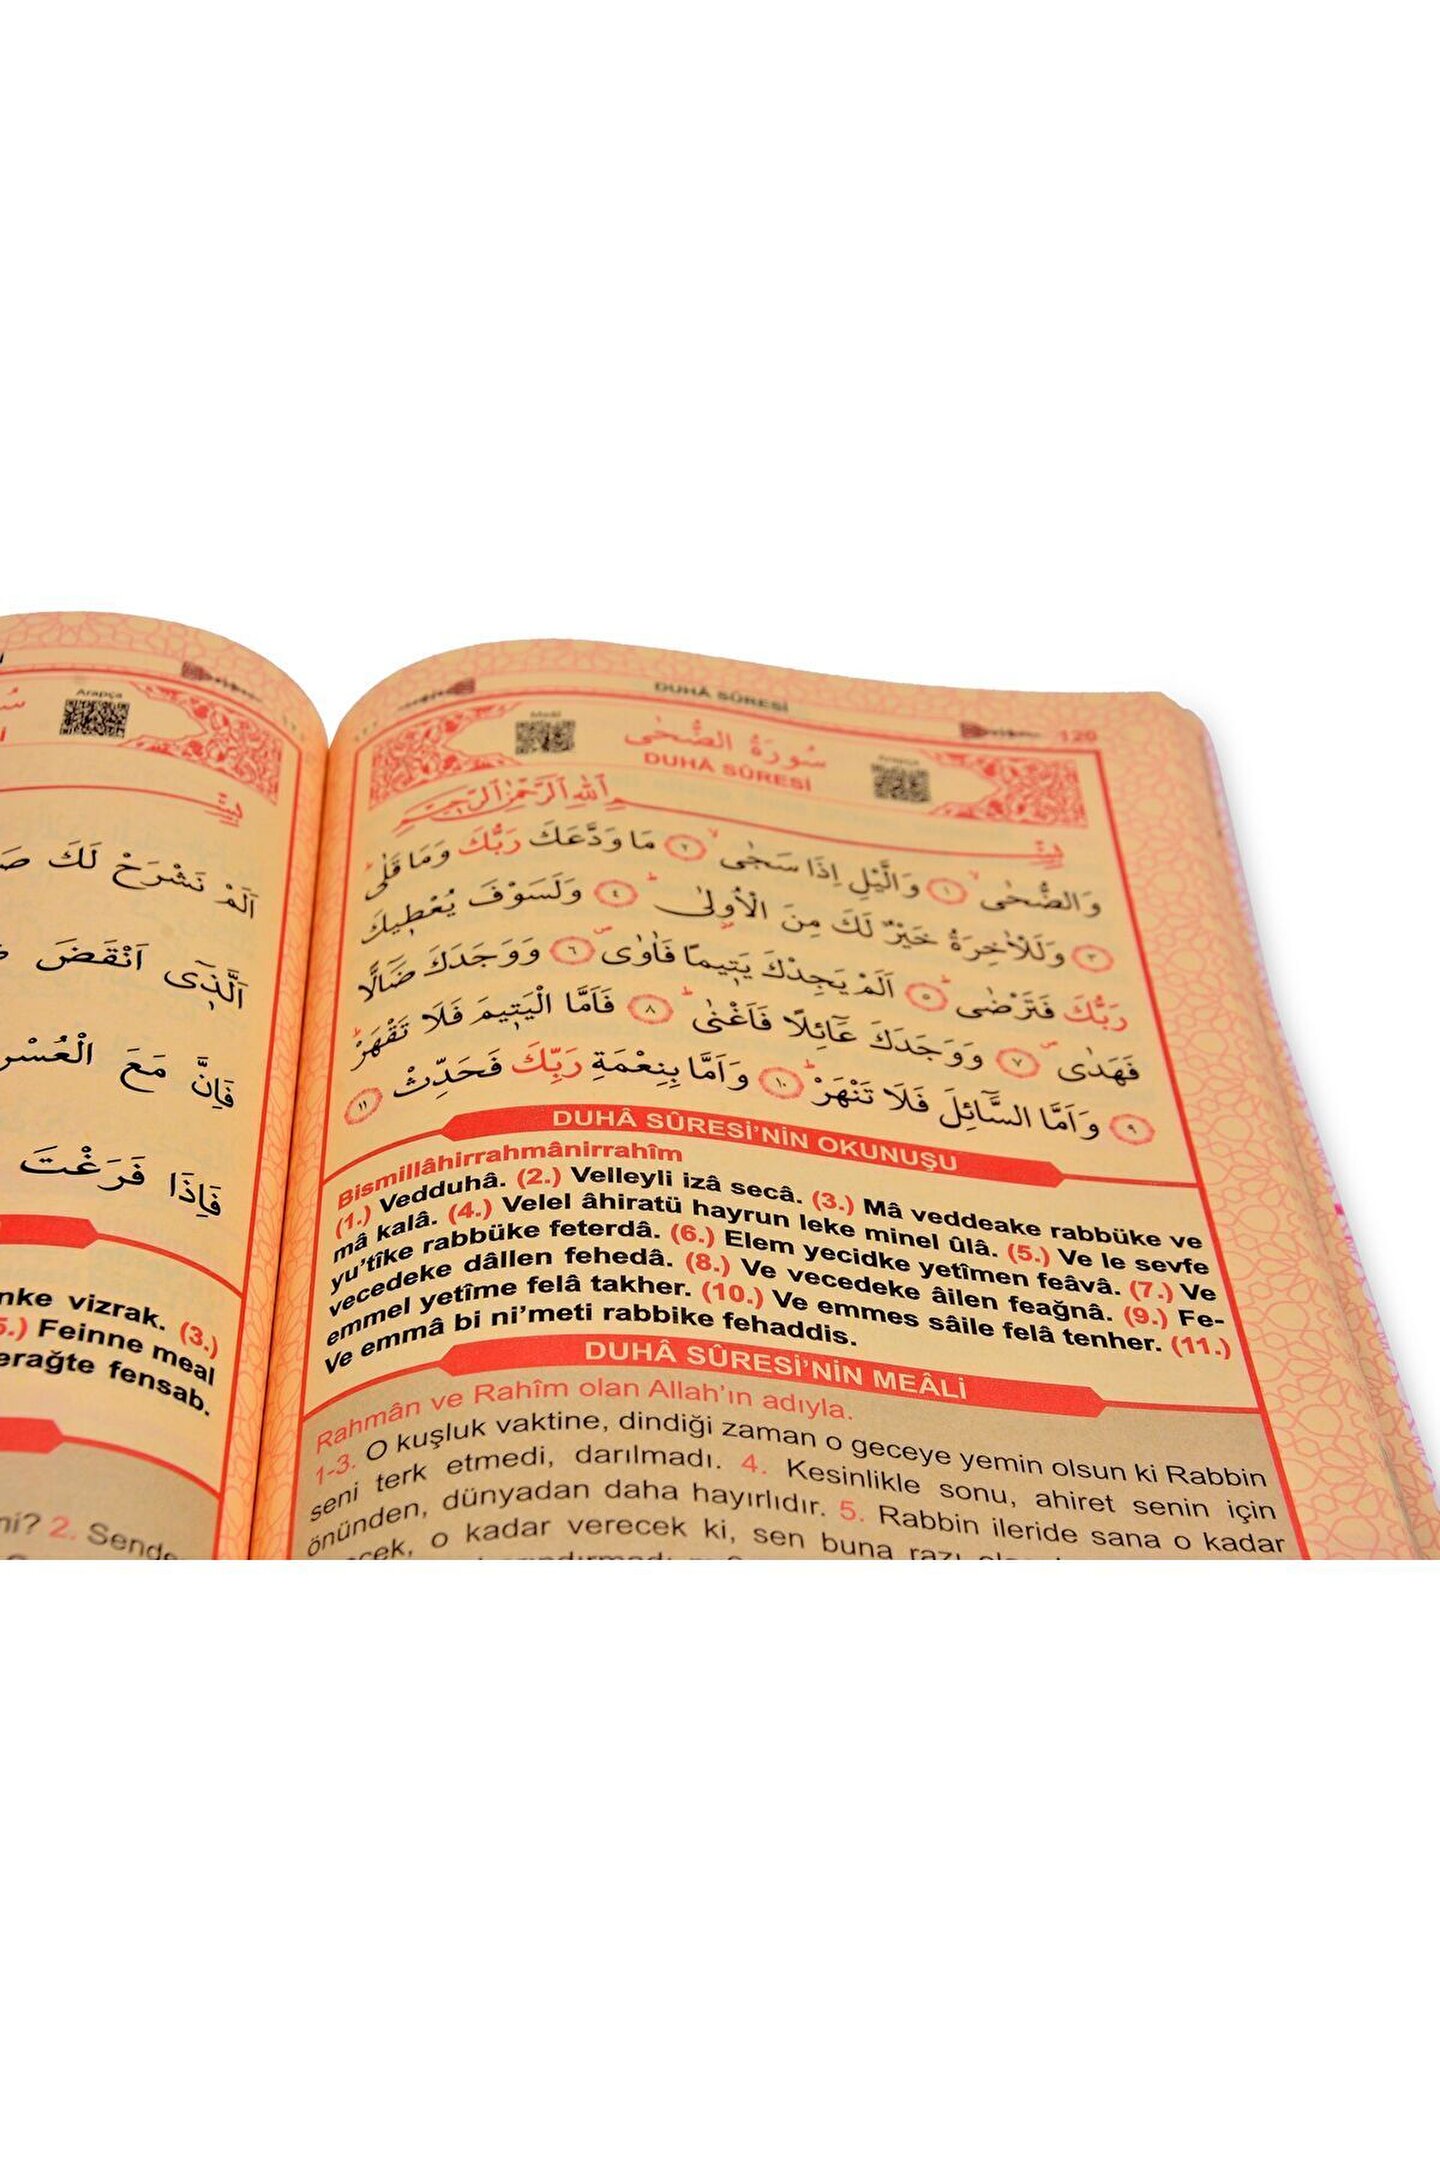 Arapça
اَلَمْ نَشْرَحْ لَكَ
اَلَّذ۪ٓى اَنْقَضَ
فَاِنَّ مَعَ الْعُسْرِ
فَاِذَا فَرَغْتَ
vizrak. (3.)
Feinne meal
fensab.
2.
DUHÂ SÛRESİ
120
Meâl
سُورَةُ الضُّحٰى
DUHÂ SÛRESİ
بِسْمِ اللّٰهِ الرَّحْمٰنِ الرَّحِيمِ
وَالضُّحٰىۙ ﴿١﴾ وَالَّيْلِ اِذَا سَجٰىۙ ﴿٢﴾ مَا وَدَّعَكَ رَبُّكَ وَمَا قَلٰىۜ
﴿٣﴾ وَلَلْاٰخِرَةُ خَيْرٌ لَكَ مِنَ الْاُو۫لٰىۜ ﴿٤﴾ وَلَسَوْفَ يُعْط۪يكَ
رَبُّكَ فَتَرْضٰىۜ ﴿٥﴾ اَلَمْ يَجِدْكَ يَت۪يمًا فَاٰوٰىۖ ﴿٦﴾ وَوَجَدَكَ ضَٓالًّا
فَهَدٰىۖ ﴿٧﴾ وَوَجَدَكَ عَٓائِلًا فَاَغْنٰىۜ ﴿٨﴾ فَاَمَّا الْيَت۪يمَ فَلَا تَقْهَرْۜ
﴿٩﴾ وَاَمَّا السَّٓائِلَ فَلَا تَنْهَرْۜ ﴿١٠﴾ وَاَمَّا بِنِعْمَةِ رَبِّكَ فَحَدِّثْ ﴿١١﴾
DUHÂ SÛRESİ’NİN OKUNUŞU
Bismillâhirrahmânirrahîm
(1.) Vedduhâ. (2.) Velleyli izâ secâ. (3.) Mâ veddeake rabbüke ve
mâ kalâ. (4.) Velel âhiratü hayrun leke minel ûlâ. (5.) Ve le sevfe
yu’tîke rabbüke feterdâ. (6.) Elem yecidke yetîmen feâvâ. (7.) Ve
vecedeke dâllen fehedâ. (8.) Ve vecedeke âilen feağnâ. (9.) Fe-
emmel yetîme felâ takher. (10.) Ve emmes sâile felâ tenher. (11.)
Ve emmâ bi ni’meti rabbike fehaddis.
DUHÂ SÛRESİ’NİN MEÂLİ
Rahmân ve Rahîm olan Allah’ın adıyla.
1-3. O kuşluk vaktine, dindiği zaman o geceye yemin olsun ki Rabbin
seni terk etmedi, darılmadı. 4. Kesinlikle sonu, ahiret senin için
önünden, dünyadan daha hayırlıdır. 5. Rabbin ileride sana o kadar
o kadar verecek ki, sen buna razı